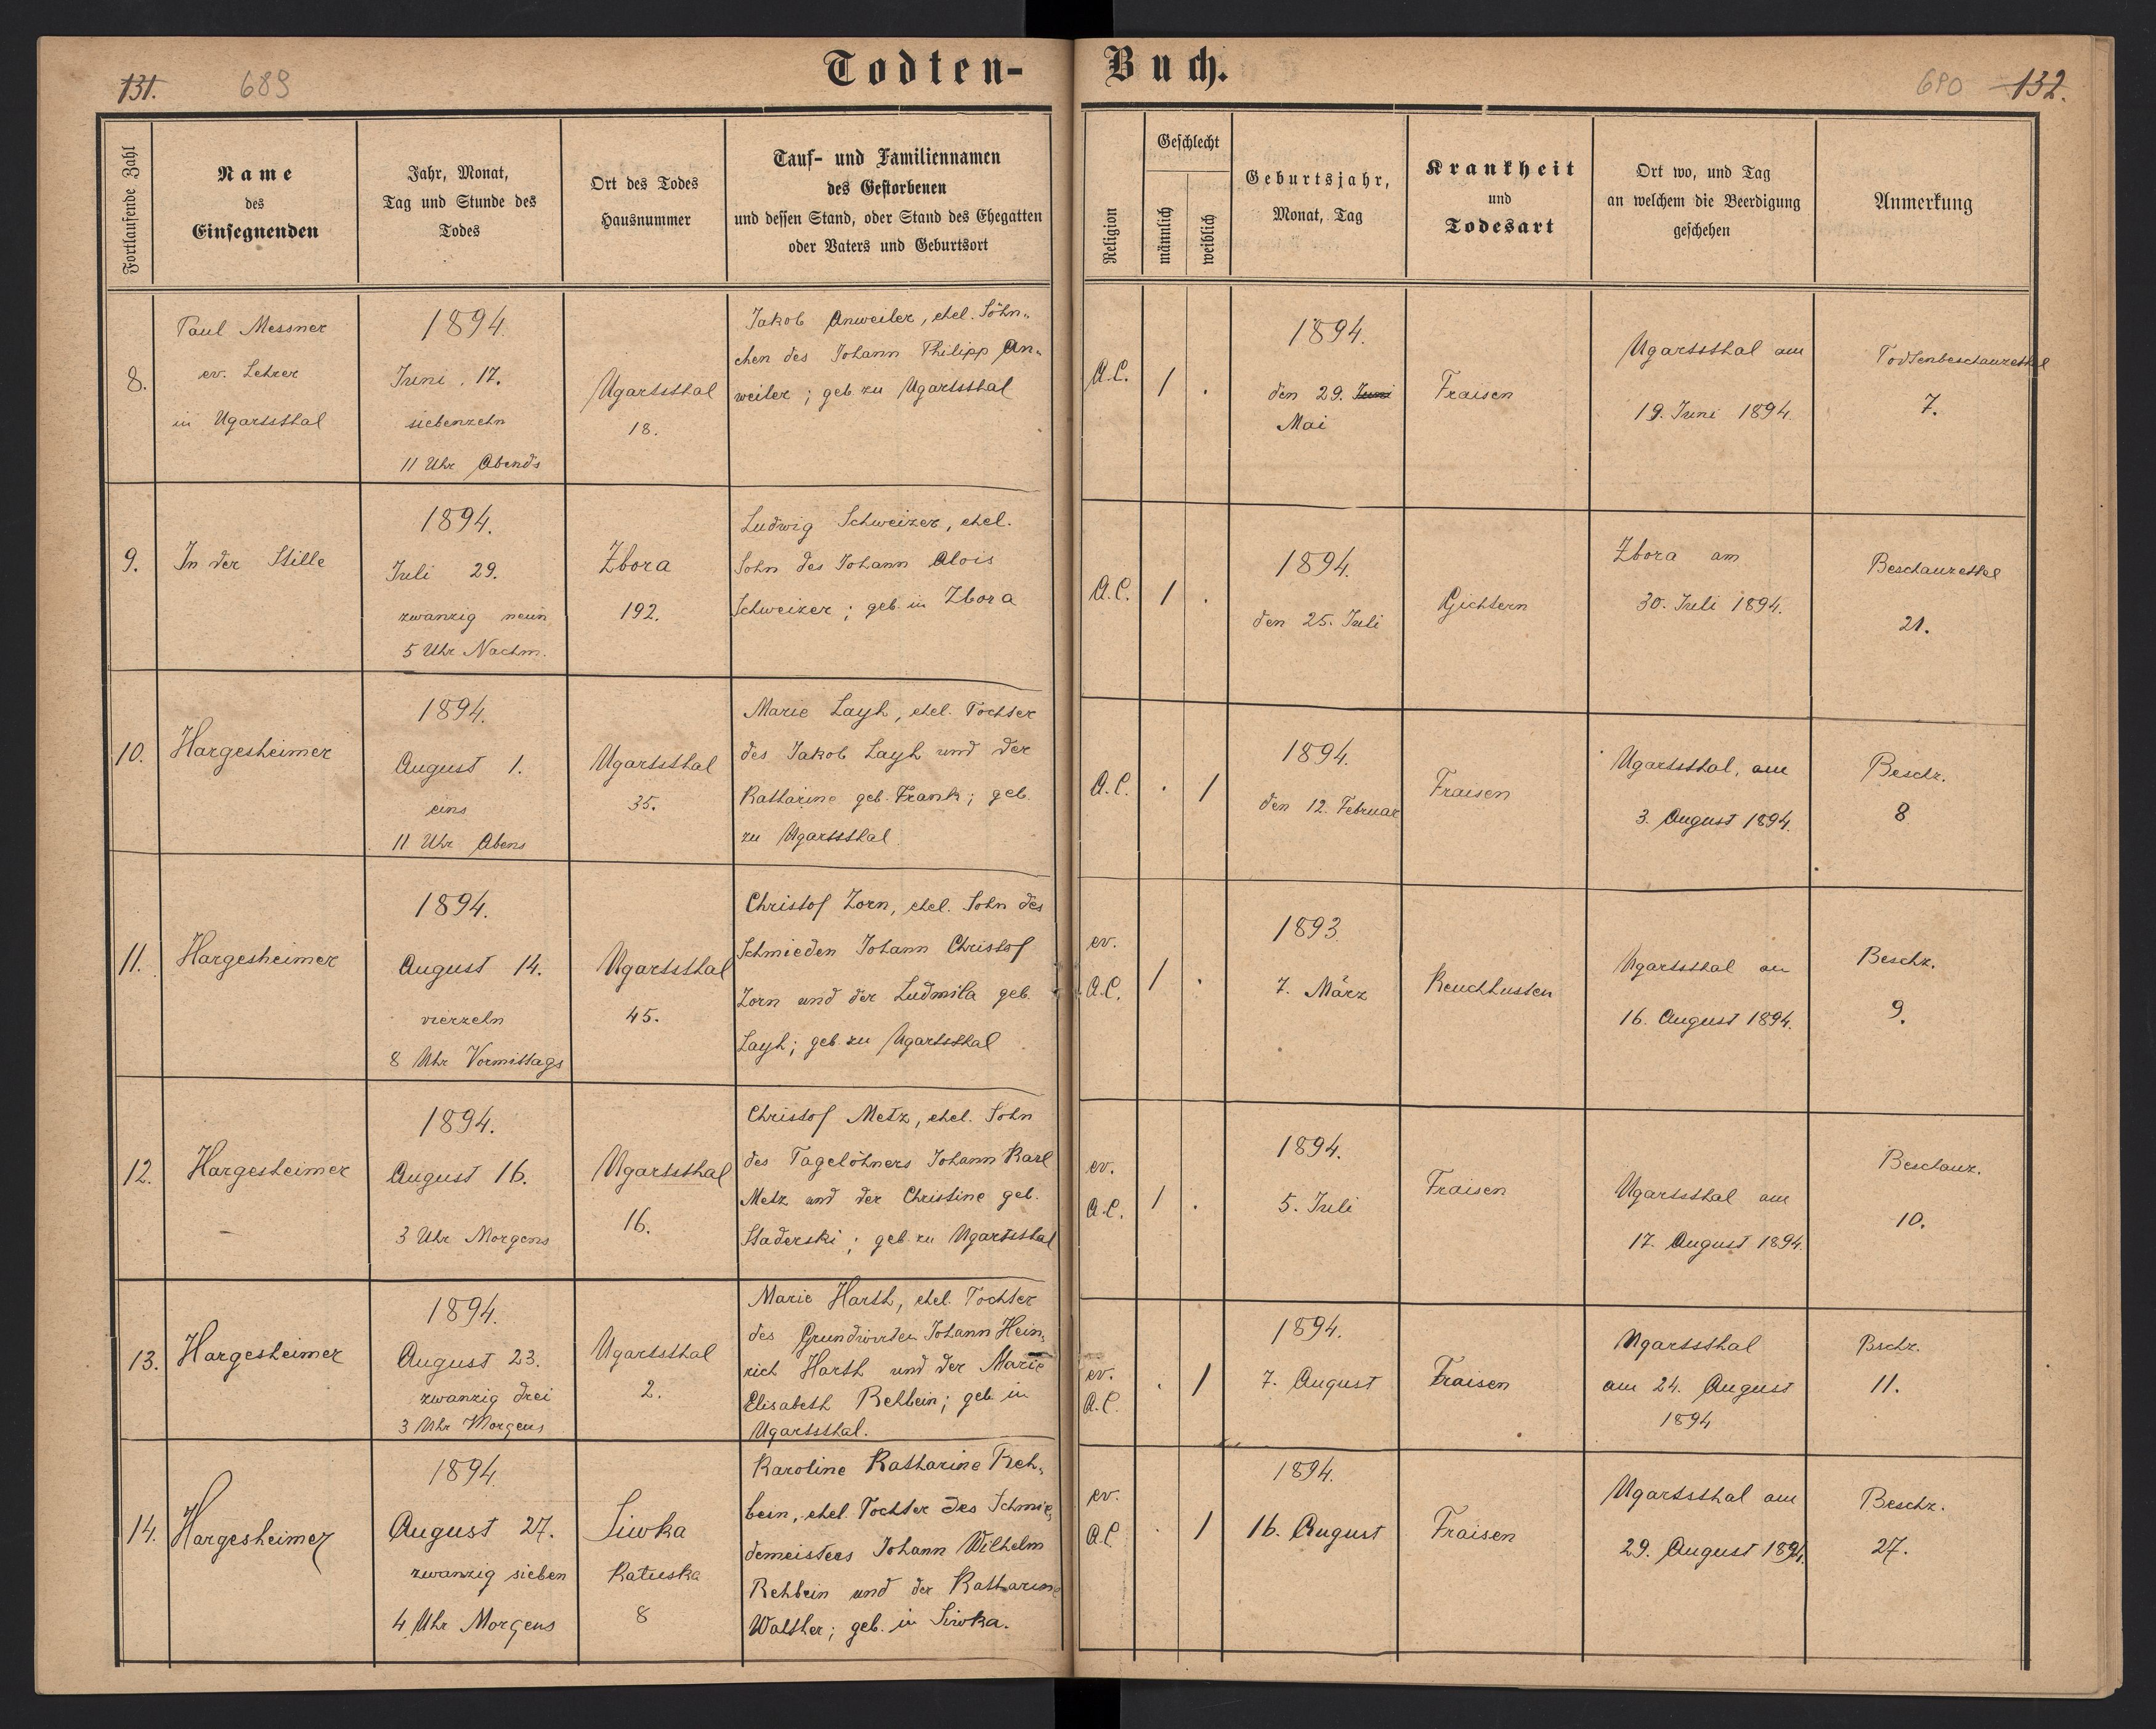 131. 689
Todten-Buch.
690 132.
Fortlaufende Zahl
Name
des
Einsegnenden
Jahr, Monat,
Tag und Stunde des
Todes
Ort des Todes
Hausnummer
Tauf- und Familiennamen
des Gestorbenen
und dessen Stand, oder Stand des Ehegatten
oder Vaters und Geburtsort
Religion
Geschlecht
männlich
weiblich
Geburtsjahr,
Monat, Tag
Krankheit
und
Todesart
Ort wo, und Tag
an welchem die Beerdigung
geschehen
Anmerkung
8.
Paul Messner
ev. Lehrer
in Ugartsthal
1894.
Juni 17.
siebenzehn
11 Uhr Abends
Ugartsthal
18.
Jakob Anweiler, ehel. Söhn-
chen des Johann Philipp An-
weiler; geb. zu Ugartsthal
A.C.
1 .
1894.
den 29. Juni
Mai
Fraisen
Ugartsthal am
19. Juni 1894.
Todtenbeschauzettel
7.
9.
In der Stille
1894.
Juli 29.
zwanzig neun
5 Uhr Nachm.
Zbora
192.
Ludwig Schweizer, ehel.
Sohn des Johann Alois
Schweizer; geb. in Zbora
A.C.
1 .
1894.
den 25. Juli
Gichtern
Zbora am
30. Juli 1894.
Beschauzettel
21.
10.
Hargesheimer
1894.
August 1.
eins
11 Uhr Abens
Ugartsthal
35.
Marie Layh, ehel. Tochter
des Jakob Layh und der
Katharine geb. Frank; geb.
zu Ugartsthal.
A.C.
. 1
1894.
den 12. Februar
Fraisen
Ugartsthal, am
3. August 1894.
Beschz.
8
11.
Hargesheimer
1894.
August 14.
vierzehn
8 Uhr Vormittags
Ugartsthal
45.
Christof Zorn, ehel. Sohn des
Schmieden Johann Christof
Zorn und der Ludmila geb.
Layh; geb. zu Ugartsthal
ev.
A.C.
1 .
1893.
7. März
Keuchhusten
Ugartsthal am
16. August 1894.
Beschz.
9.
12.
Hargesheimer
1894.
August 16.
3 Uhr Morgens
Ugartsthal
16.
Christof Metz, ehel. Sohn
des Tagelöhners Johann Karl
Metz und der Christine geb.
Staderski; geb. zu Ugartsthal
ev.
A.C.
1 .
1894.
5. Juli
Fraisen
Ugartsthal am
17. August 1894.
Beschauz.
10.
13.
Hargesheimer
1894.
August 23.
zwanzig drei
3 Uhr Morgens
Ugartsthal
2.
Marie Harth, ehel. Tochter
des Grundwirten Johann Hein-
rich Harth und der Marie
Elisabeth Rehbein; geb. in
Ugartsthal.
ev.
A.C.
. 1
1894.
7. August
Fraisen
Ugartsthal
am 24. August
1894
Bschz.
11.
14.
Hargesheimer
1894.
August 27.
zwanzig sieben
4 Uhr Morgens
Siwka
Katuska
8
Karoline Katharine Reh-
bein, ehel. Tochter des Schmie-
demeisters Johann Wilhelm
Rehbein und der Katharine
Walther; geb. in Siwka.
ev.
A.C.
. 1
1894.
16. August
Fraisen
Ugartsthal am
29. August 1894.
Beschz.
27.